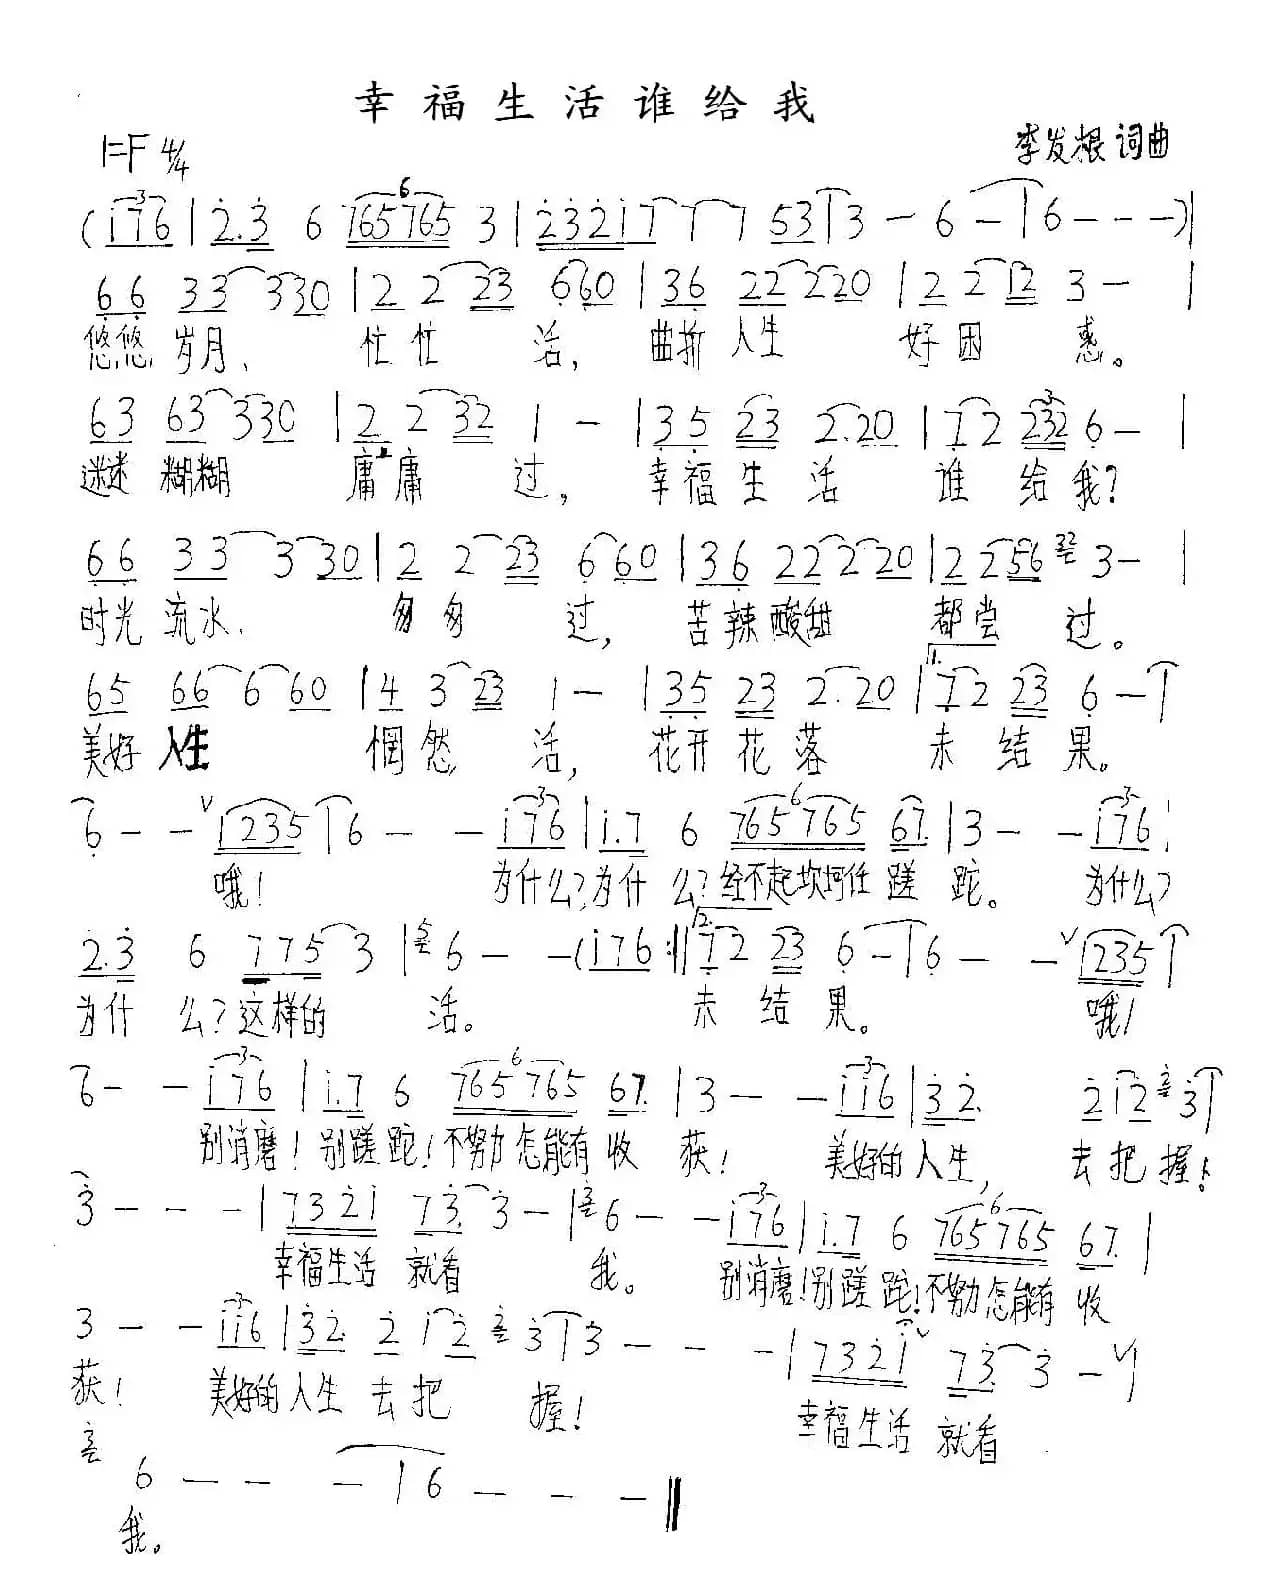 幸福生活谁给我
1=F 4/4 李发根 词曲
(i76|2.3 6 765765 3|23217 1 7 53|3 - 6 -|6 - - -)|
66 33 3330|2 2 23 660|36 22 2220|2 2 12 3 -|
悠悠岁月、忙忙活，曲折人生好困惑。
63 63 3330|2 2 32 1 -|35 23 2.20|1 2 232 6 -|
迷迷糊糊庸庸过，幸福生活谁给我？
66 33 3330|2 2 23 660|36 22 2220|2 2 56 32 3 -|
时光流水、匆匆过，苦辣酸甜都尝过。
65 66 6 60|4 3 23 1 -|35 23 2.20|1. 1 2 23 6 -|
美好人生惘然活，花开花落未结果。
6 - - 1235|6 - - i76|i.7 6 765765 67.|3 - - i76|
哦！为什么？为什么？经不起坎坷任蹉跎。为什么？
2.3 6 775 3|5 6 - - (i76:‖2. 1 2 23 6 -|6 - - 1235|
为什么？这样的活。未结果。哦！
6 - - i76|i.7 6 765765 67.|3 - - ii6|32. 2 i2 3 3|
别消磨！别蹉跎！不努力怎能有收获！美好的人生，去把握！
3 - - -|732i 73. 3 -|3 6 - - i76|i.7 6 765765 67.|
幸福生活就看我。别消磨！别蹉跎！不努力怎能有收
3 - - ii6|32. 2 i2 3 3|3 - - -|732i 73. 3 -|
获！美好的人生去把握！幸福生活就看
3 6 - - -|6 - - -‖
我。